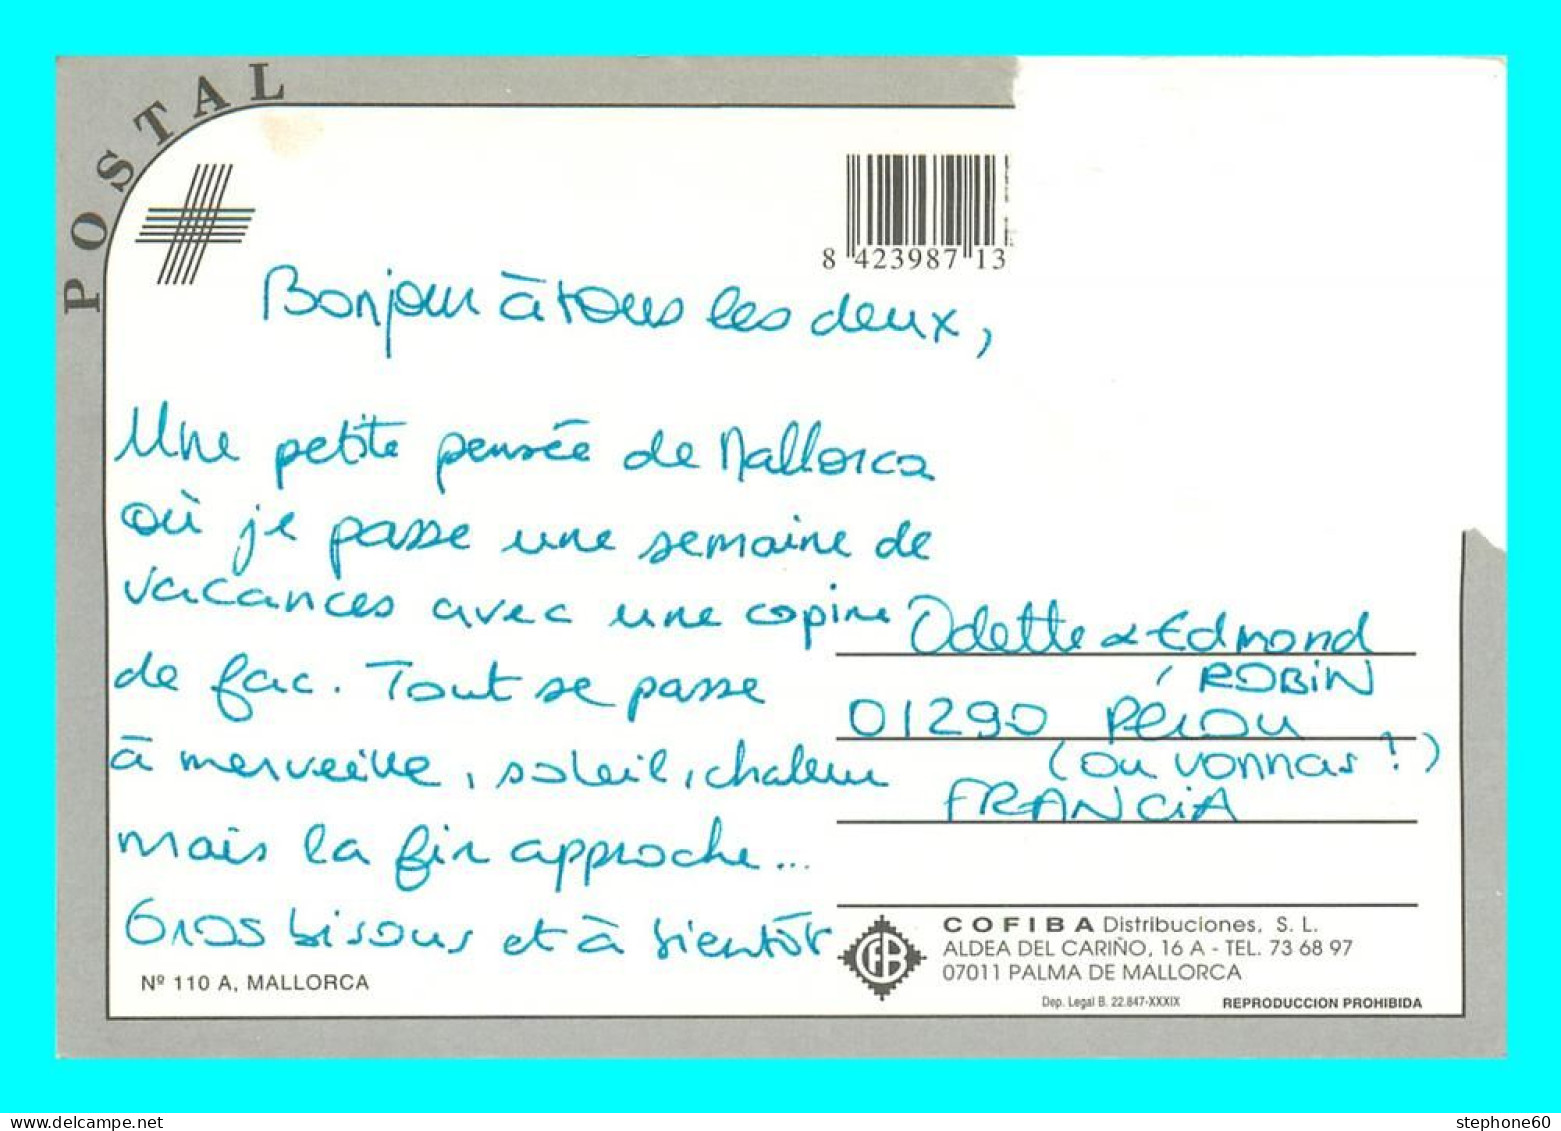 POSTAL
8 423987 13
Bonjour à tous les deux,
Une petite pensée de Mallorca
où je passe une semaine de
vacances avec une copine
de fac. Tout se passe
à merveille, soleil, chaleur
mais la fin approche...
Gros bisous et à bientôt
Odette & Edmond
ROBIN
01290 Pérou
(ou vonnas !)
FRANCiA
Nº 110 A, MALLORCA
COFIBA Distribuciones, S. L.
ALDEA DEL CARIÑO, 16 A - TEL. 73 68 97
07011 PALMA DE MALLORCA
Dep. Legal B. 22.847-XXXIX REPRODUCCION PROHIBIDA
stephone60